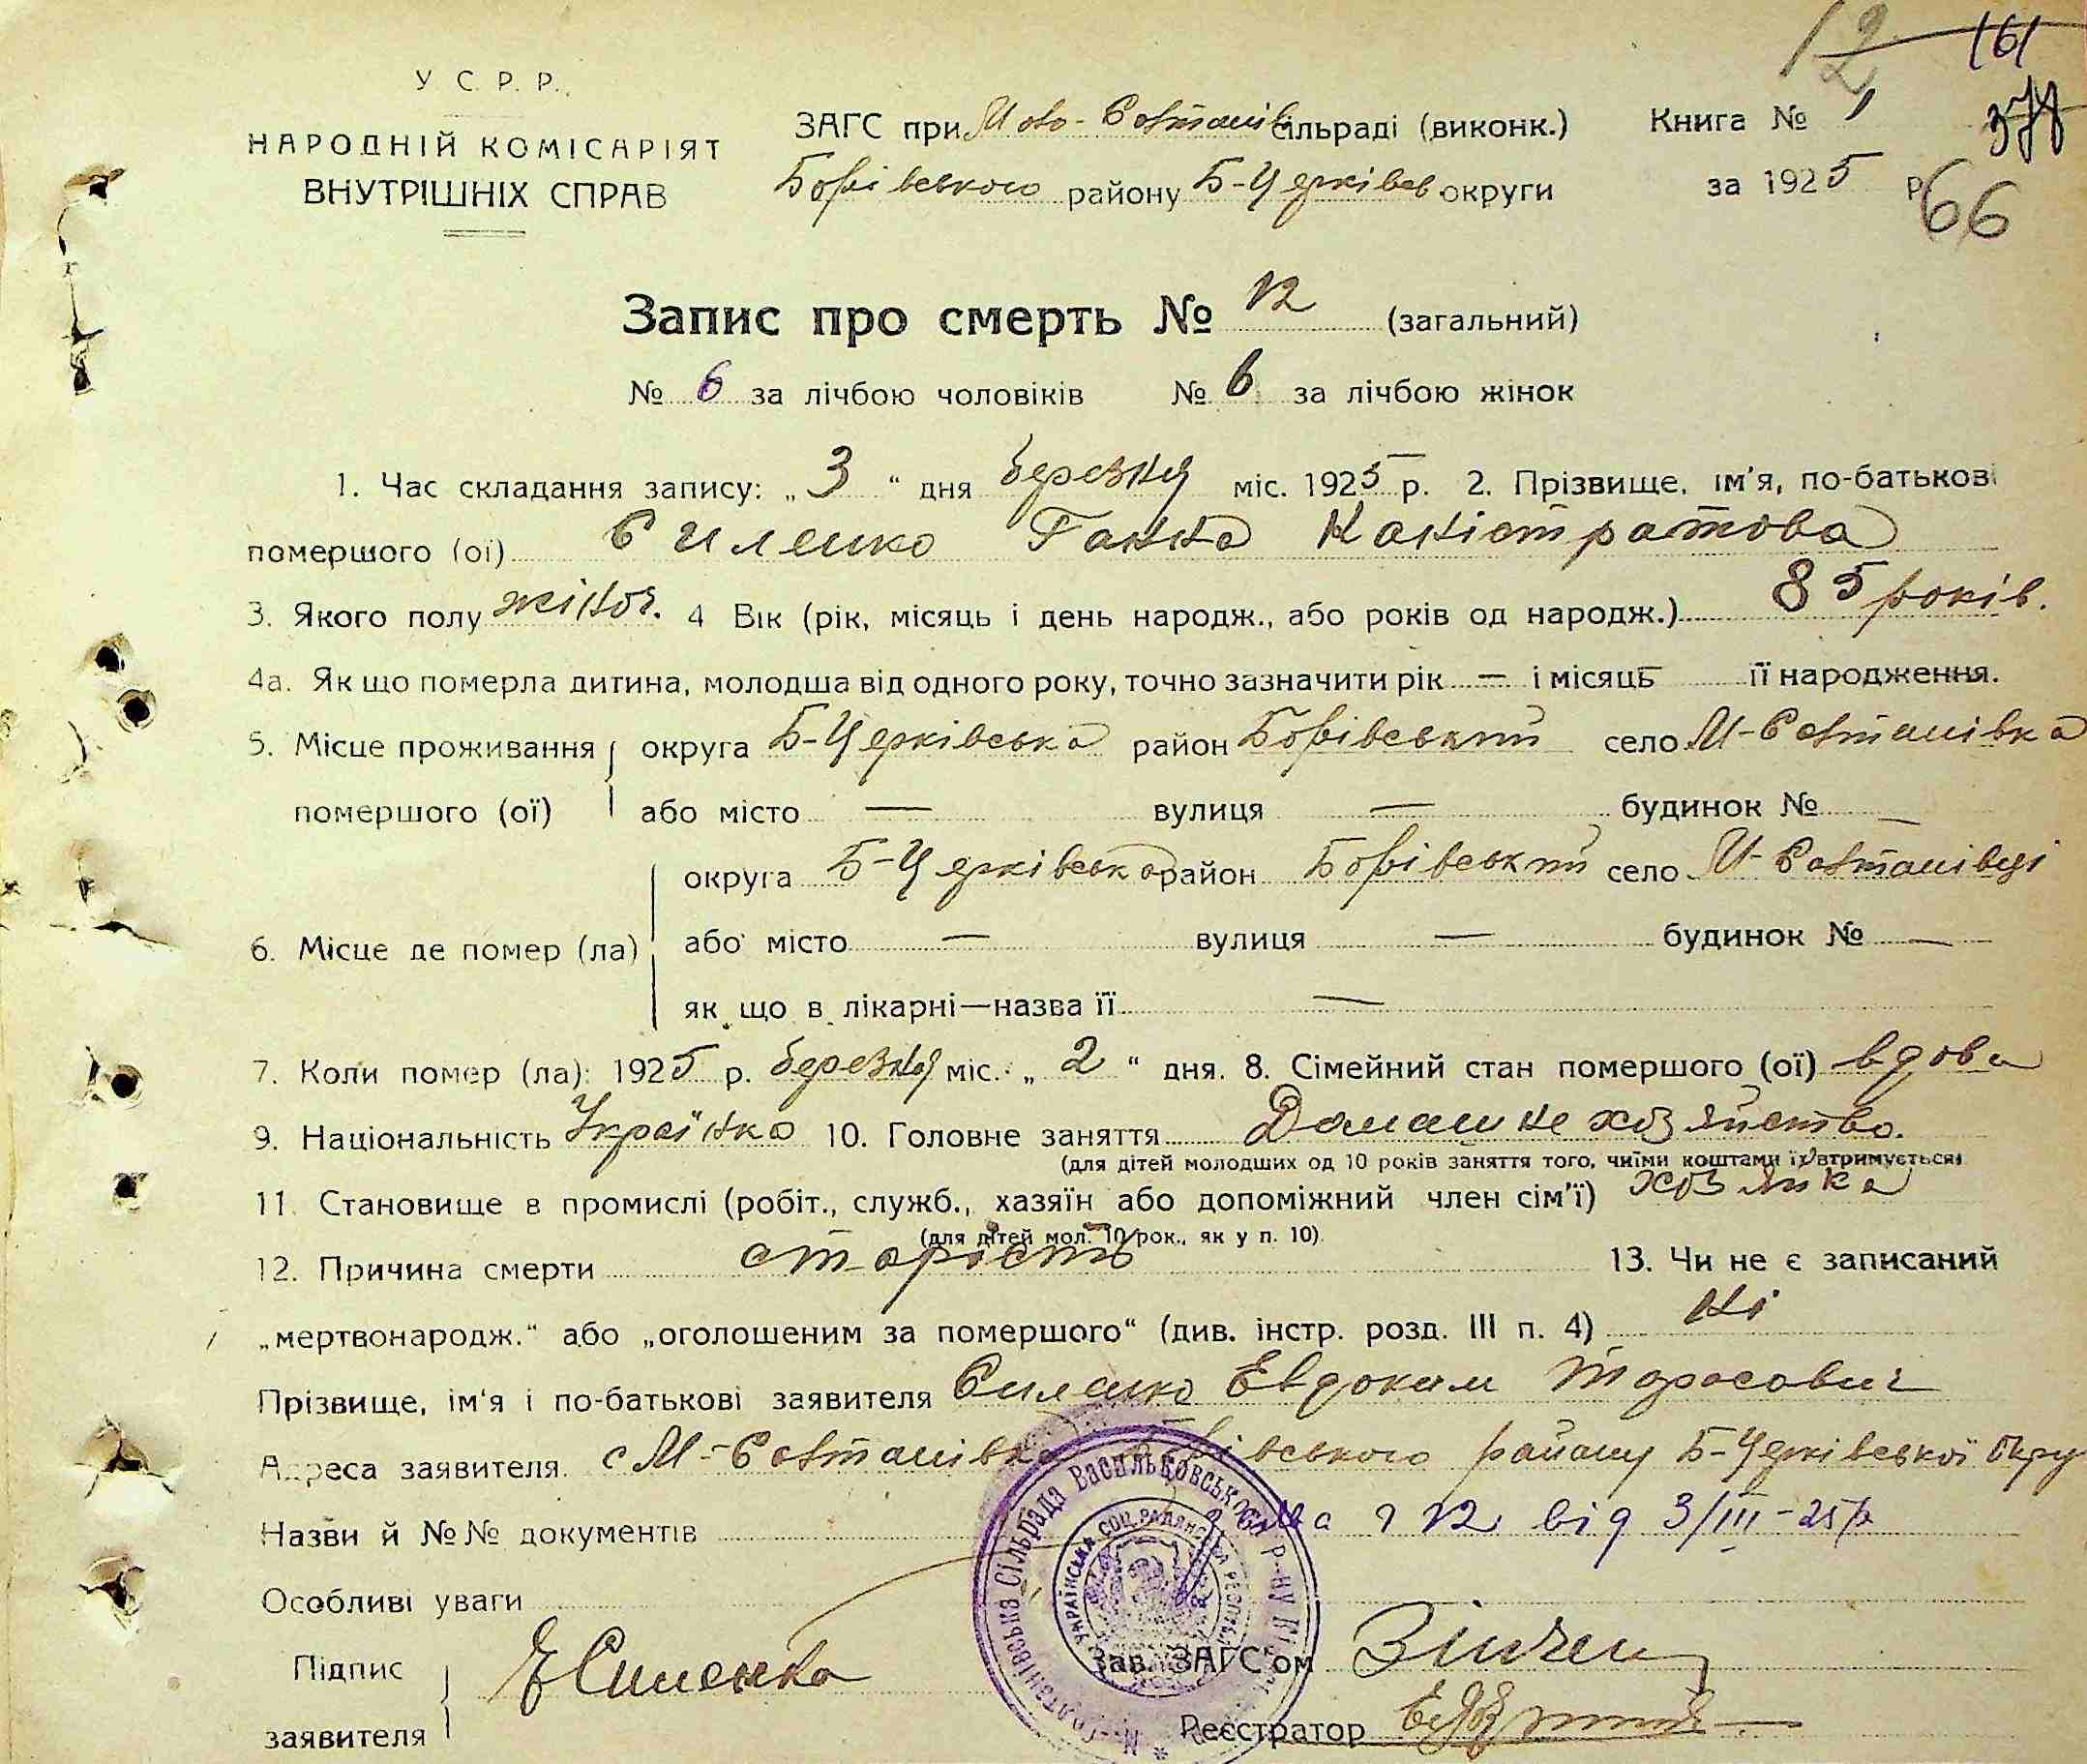 12 161
У С. Р. Р.
377
НАРОДНІЙ КОМІСАРІЯТ
ВНУТРІШНІХ СПРАВ
ЗАГС при Мото-Солтанів сільраді (виконк.) Книга № 1
Борівського району Б-Церківсь округи за 1925 р
66
Запис про смерть № 12 (загальний)
№ 6 за лічбою чоловіків № 6 за лічбою жінок
1. Час складання запису: „ 3 “ дня березня міс. 1925 р. 2. Прізвище, ім'я, по-батькові
помершого (ої) Силенко Ганна Каністратова
3. Якого полу жіноч. 4 Вік (рік, місяць і день народж., або років од народж.) 85 років.
4а. Як що померла дитина, молодша від одного року, точно зазначити рік — і місяць — її народження.
5. Місце проживання помершого (ої) округа Б-Церківська район Борівський село М-Солтанівка
або місто — вулиця — будинок № —
6. Місце де помер (ла) округа Б-Церківська район Борівський село М-Солтанівці
або місто — вулиця — будинок № —
як що в лікарні—назва її —
7. Коли помер (ла): 1925 р. березня міс. „ 2 “ дня. 8. Сімейний стан помершого (ої) вдова
9. Національність Українка 10. Головне заняття Домашнє хозяйство.
(для дітей молодших од 10 років заняття того, чиїми коштами їх втримується)
11. Становище в промислі (робіт., служб., хазяїн або допоміжний член сім'ї) хозяйка
(для дітей мол. 10 рок., як у п. 10).
12. Причина смерти старість 13. Чи не є записаний
„мертвонародж.“ або „оголошеним за помершого“ (див. інстр. розд. III п. 4) Ні
Прізвище, ім'я і по-батькові заявителя Силенко Евдоким Тарасович
Адреса заявителя. с М-Солтанівка Борівського району Б-Церківської Окру
Назви й №№ документів 12 від 3/III-25 р
Особливі уваги
Підпис заявителя Е Силенко
Зав. ЗАГС'ом Зінчен
Реєстратор
М-Солтанівська Сільрада Васильковського Р-ну
УКРАЇНСЬКА СОЦ. РАДЯНСЬКА РЕСПУБЛ